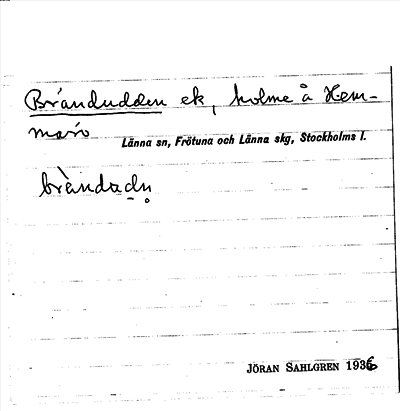 Brändudden ek, holme å Hem-
marö
Länna sn, Frötuna och Länna skg, Stockholms l.
brändadn
JÖRAN SAHLGREN 1936